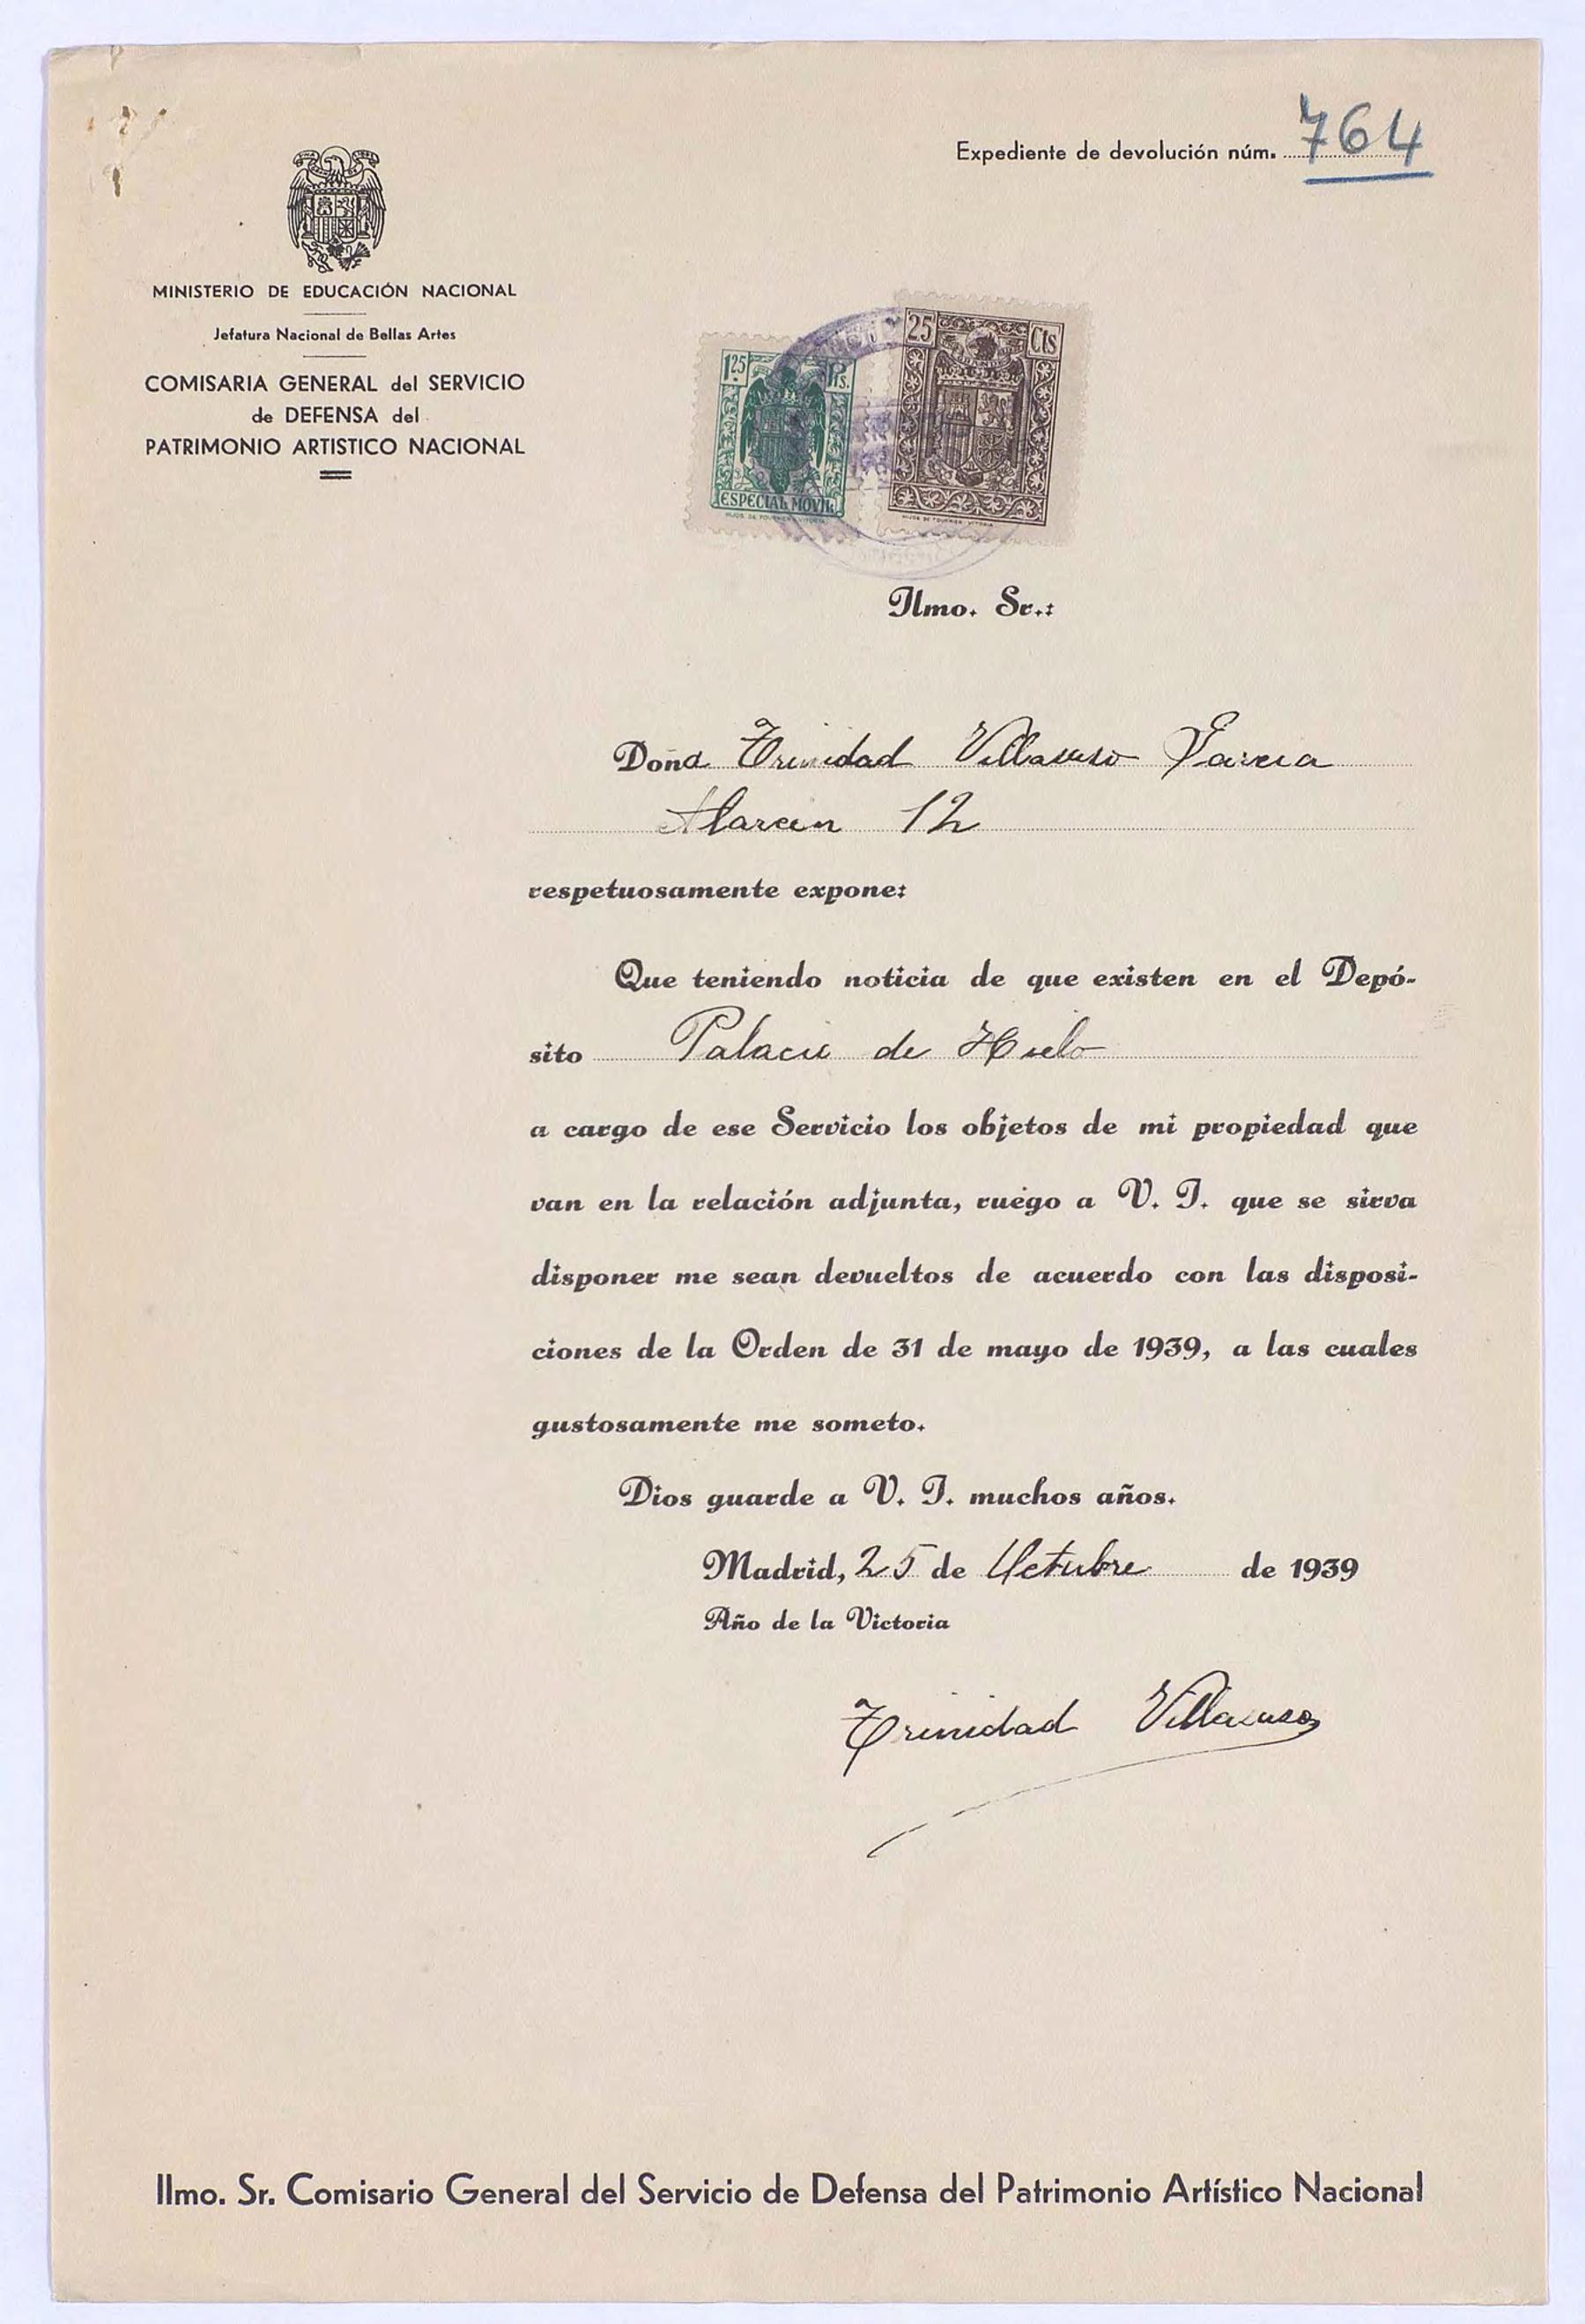 Expediente de devolución núm. 764
MINISTERIO DE EDUCACIÓN NACIONAL
Jefatura Nacional de Bellas Artes
COMISARIA GENERAL del SERVICIO
de DEFENSA del
PATRIMONIO ARTISTICO NACIONAL
1'25 Pts.
ESPECIAL MOVIL
HIJOS DE FOURNIER-VITORIA
25 Cts
HIJOS DE FOURNIER-VITORIA
Ilmo. Sr.:
Doña Trinidad Villasuso Garcia
Alarcon 12
respetuosamente expone:
Que teniendo noticia de que existen en el Depó-
sito Palacio de Hielo
a cargo de ese Servicio los objetos de mi propiedad que
van en la relación adjunta, ruego a V. I. que se sirva
disponer me sean devueltos de acuerdo con las disposi-
ciones de la Orden de 31 de mayo de 1939, a las cuales
gustosamente me someto.
Dios guarde a V. I. muchos años.
Madrid, 25 de Octubre de 1939
Año de la Victoria
Trinidad Villasuso
Ilmo. Sr. Comisario General del Servicio de Defensa del Patrimonio Artístico Nacional